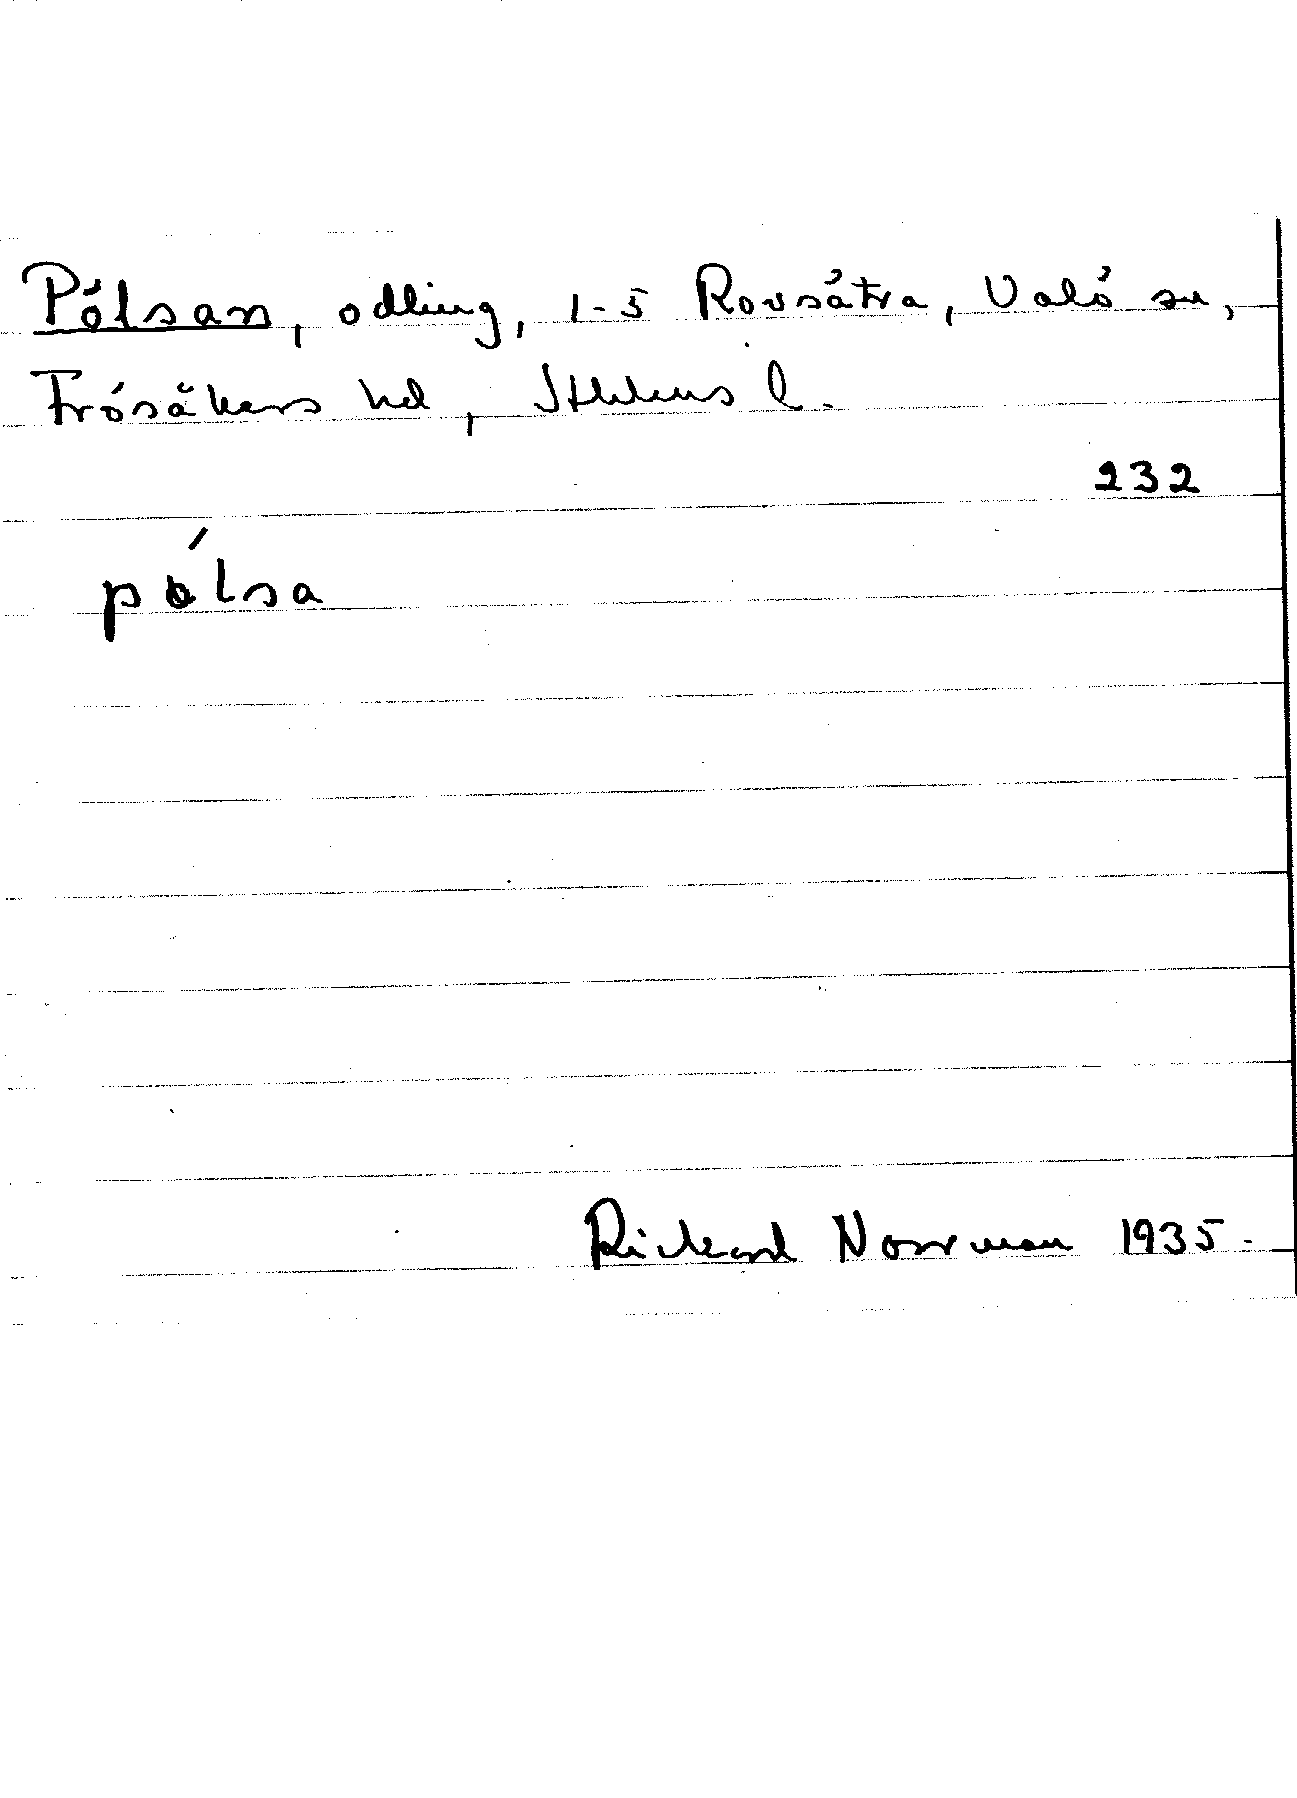 Pölsan, odling, 1-5 Rovsätra, Valö sn,
Frösåkers hd, Sthlms l.
232
pò́lsa
Rickard Norrman 1935.